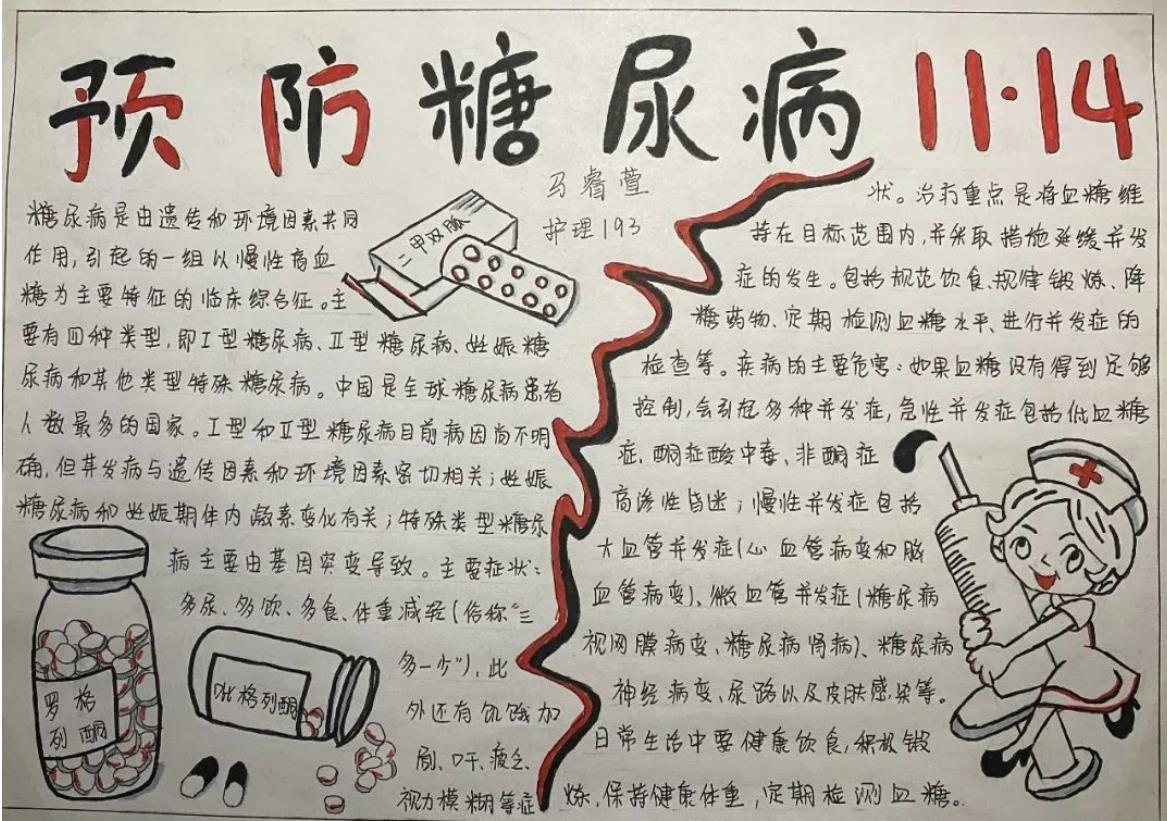 预防糖尿病 11·14
马睿萱
护理193
糖尿病是由遗传和环境因素共同
作用,引起的一组以慢性高血
糖为主要特征的临床综合征。主
要有四种类型,即I型糖尿病、II型糖尿病、妊娠糖
尿病和其他类型特殊糖尿病。中国是全球糖尿病患者
人数最多的国家。I型和II型糖尿病目前病因尚不明
确,但其发病与遗传因素和环境因素密切相关;妊娠
糖尿病和妊娠期体内激素变化有关;特殊类型糖尿
病主要由基因突变导致。主要症状:
多尿、多饮、多食、体重减轻(俗称“三
多一少”),此
外还有饥饿加
剧、口干、疲乏、
视力模糊等症
状。治疗重点是将血糖维
持在目标范围内,并采取措施延缓并发
症的发生。包括规范饮食、规律锻炼、降
糖药物、定期检测血糖水平、进行并发症的
检查等。疾病的主要危害:如果血糖没有得到足够
控制,会引起多种并发症,急性并发症包括低血糖
症、酮症酸中毒、非酮症
高渗性昏迷;慢性并发症包括
大血管并发症(心血管病变和脑
血管病变)、微血管并发症(糖尿病
视网膜病变、糖尿病肾病)、糖尿病
神经病变、尿路以及皮肤感染等。
日常生活中要健康饮食,积极锻
炼,保持健康体重,定期检测血糖。
二甲双胍
罗格
列酮
吡格列酮